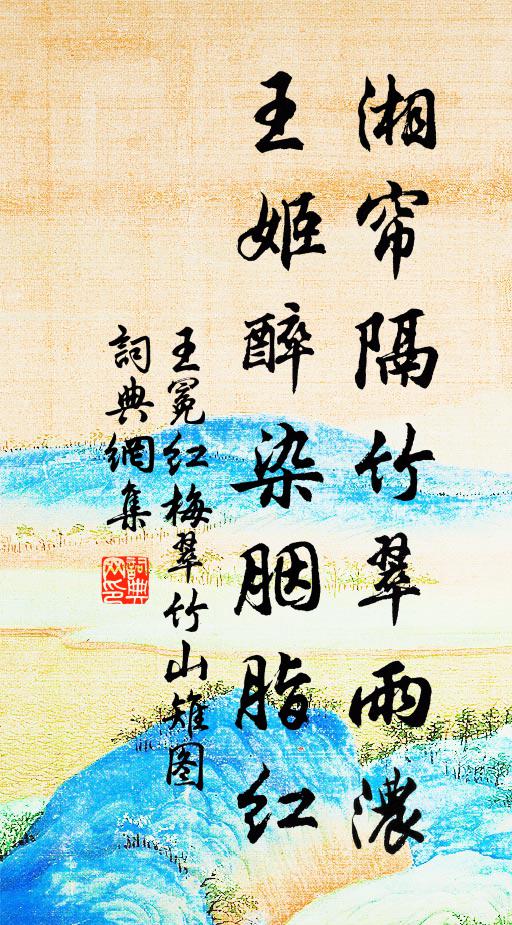 湘帘隔竹翠雨濃
王姬醉染胭脂红
王冕红梅翠竹山雉图
詞典網集
詞典
网印